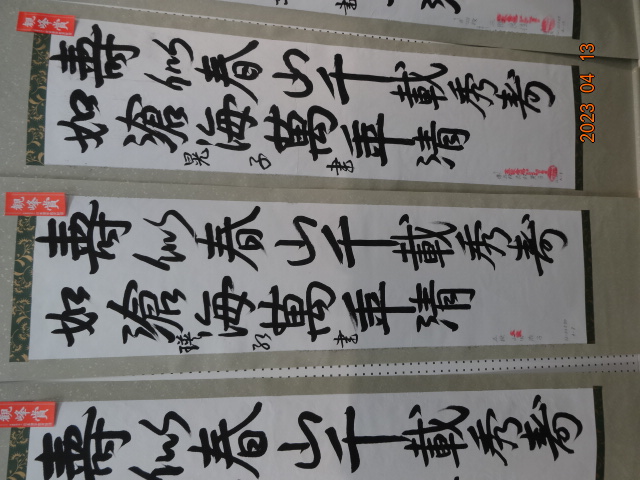 観峰賞
壽似春山千載秀壽
如滄海萬年清
晃子書
2023 04 13
観峰賞
壽似春山千載秀壽
如滄海萬年清
書
観峰賞
壽似春山千載秀壽